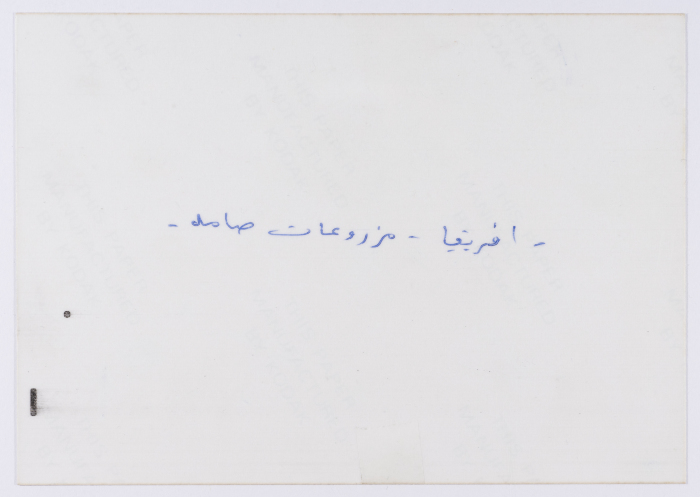 - افريقيا - مزروعات صامد -